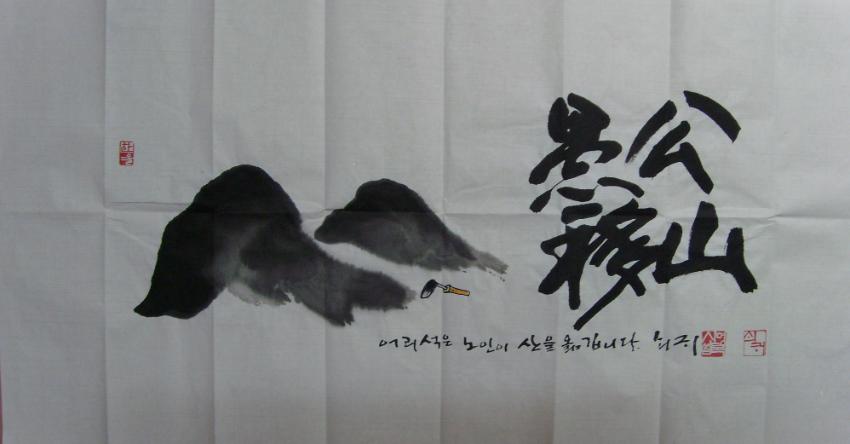 愚公
移山
어리석은 노인이 산을 옮깁니다.